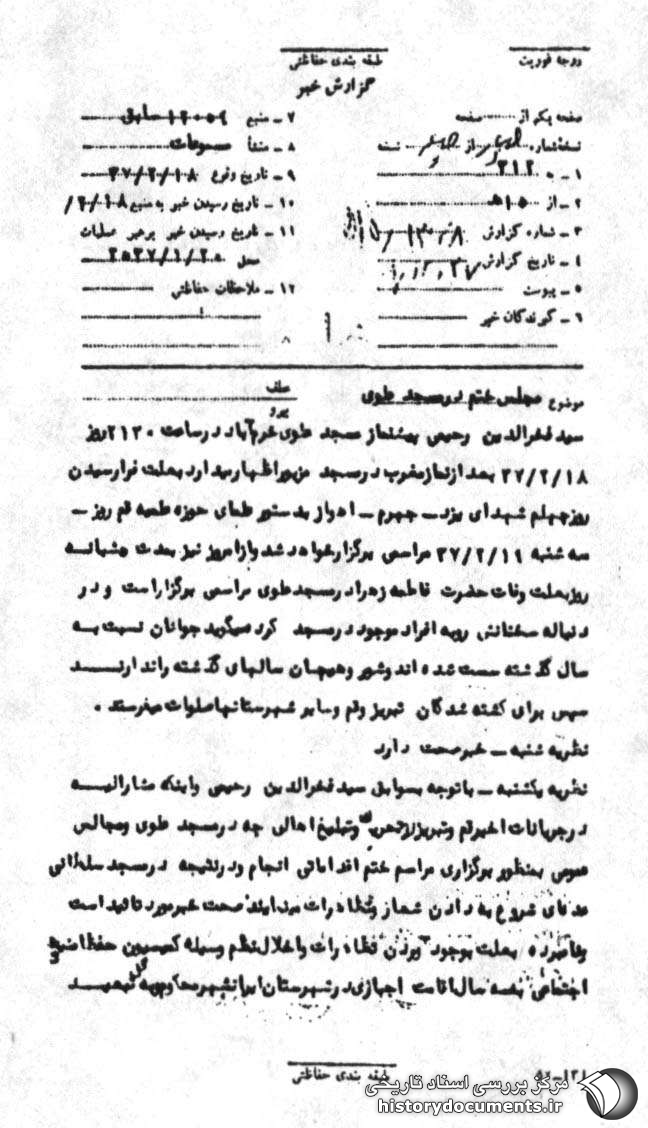 درجه فوریت
طبقه بندی حفاظتی
گزارش خبر
صفحه یکم از صفحه
نسخه شماره از نسخه
۱ ـ به ۳۱۲
۲ ـ از ۱۵ ه
۳ ـ شماره گزارش
۴ ـ تاریخ گزارش
۵ ـ پیوست
۶ ـ گیرندگان خبر
۷ ـ منبع سابق
۸ ـ منشأ مسموعات
۹ ـ تاریخ وقوع ۳۷/۲/۱۸
۱۰ ـ تاریخ رسیدن خبر به منبع
۱۱ ـ تاریخ رسیدن خبر برهبر عملیات
محل
۱۲ ـ ملاحظات حفاظتی
موضوع مجلس ختم در مسجد علوی
عطف
پیرو
سید فخرالدین رحیمی پیشنماز مسجد علوی خرم آباد در ساعت ۲۱۳۰ روز
۳۷/۲/۱۸ بعد از نماز مغرب در مسجد مزبور اظهار میدارد بعلت فرا رسیدن
روز چهلم شهدای یزد ـ جهرم ـ اهواز بدستور علمای حوزه علمیه قم روز ـ
سه شنبه ۳۷/۲/۱۹ مراسمی برگزار خواهد شد و از امروز نیز بمدت
روز بعلت وفات حضرت فاطمه زهرا در مسجد علوی مراسمی برگزار است و در
دنباله سخنانش رو به افراد موجود در مسجد کرد میگوید جوانان نسبت به
سال گذشته سست شده اند و شور و هیجان سالهای گذشته را ندارنـــد
سپس برای کشته شدگان تبریز و قم و سایر شهرستانها صلوات میفرستد .
نظریه شنبه ـ خبر صحت دارد
نظریه یکشنبه ـ با توجه بسوابق سید فخرالدین رحیمی و اینکه مشارالیـــه
در جریانات اخیر قم و تبریز در و تبلیغ اهالی چه در مسجد علوی و مجالس
عمومی بمنظور برگزاری مراسم ختم اقداماتی انجام و در نتیجه در مسجد سلطانی
عده ای شروع به دادن شعار و تظاهرات مینمایند صحت خبر مورد تائید است
و نامبرده بعلت بوجود آوردن تظاهرات و اخلال نظم وسیله کمیسیون حفظ امنیت
اجتماعی بسه سال اقامت اجباری در شهرستان ایرانشهر محکوم
طبقه بندی حفاظتی
مرکز بررسی اسناد تاریخی
historydocuments.ir